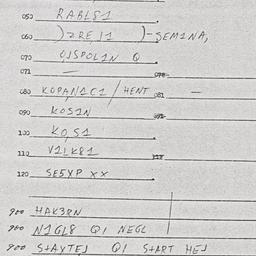 050 RABLS1
060 )ZRE11 )-SEMINA,
070 QISPOL1N Q
071 — 078
080 KOPAN1C1 / HENT 081 —
090 KOS1N 091
100 KOS1
110 V1LK81 117
120 SE5XP XX
900 HAK3RN
900 N1GL8 Q1 NEGL
900 STAXTEJ Q1 START HEJ